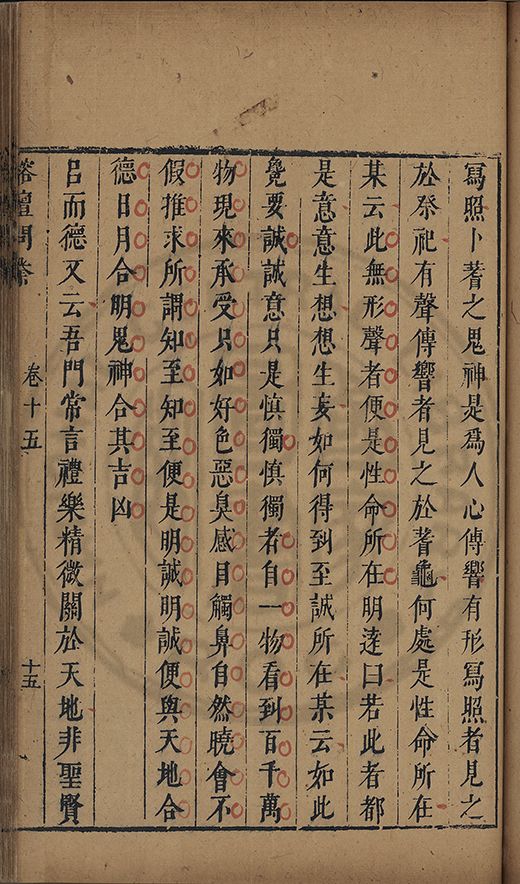 寫照卜蓍之鬼神是為人心傳響有形寫照者見之
於祭祀有聲傳響者見之於蓍龜何處是性命所在
某云此無形聲者便是性命所在明逵曰若此者都
是意意生想想生妄如何得到至誠所在某云如此
毚要誠誠意只是慎獨慎獨者自一物看到百千萬
物現來承受只如好色惡臭感目觸鼻自然曉會不
假推求所謂知至知至便是明誠明誠便與天地合
德日月合明鬼神合其吉凶
呂而德又云吾門常言禮樂精微關於天地非聖賢
榕壇問業
卷十五
十五